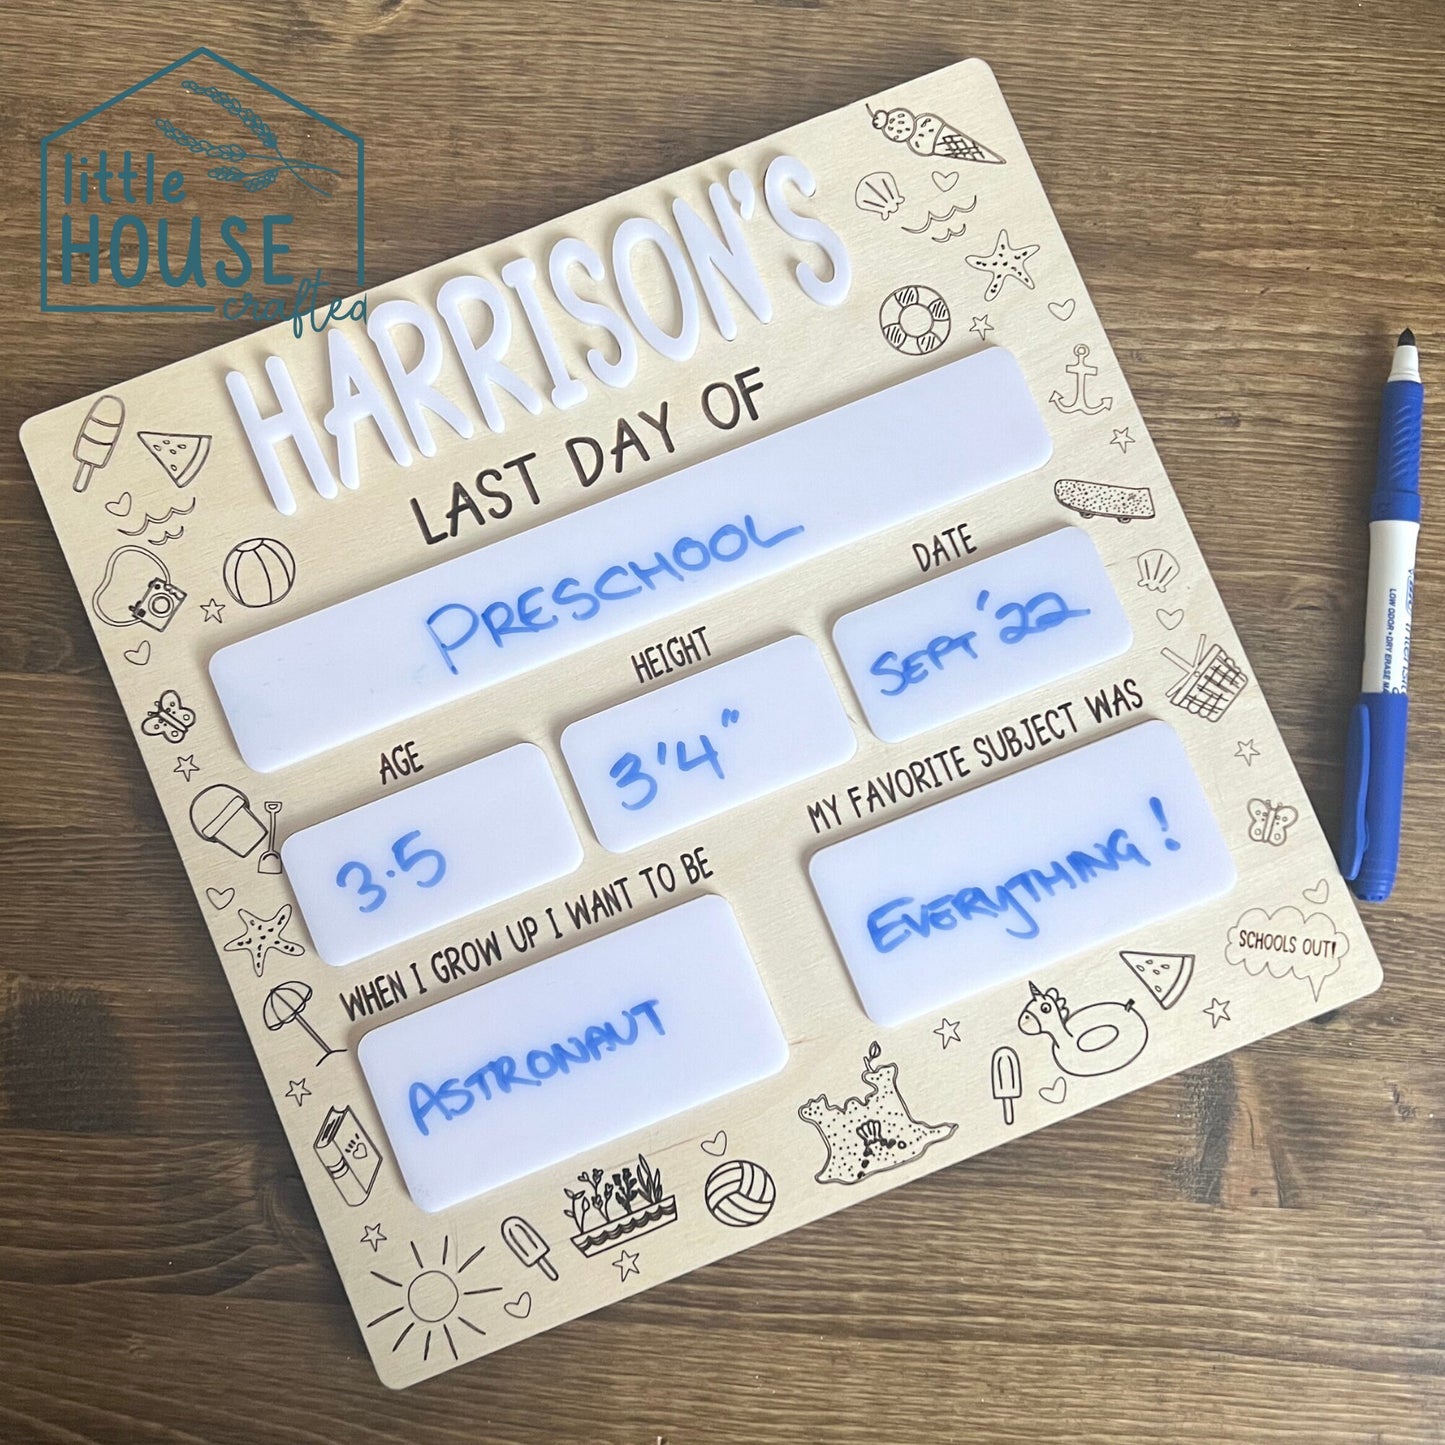 little
HOUSE
crafted
HARRISON'S
LAST DAY OF
PRESCHOOL
AGE
3.5
HEIGHT
3'4"
DATE
SEPT '22
WHEN I GROW UP I WANT TO BE
ASTRONAUT
MY FAVORITE SUBJECT WAS
EVERYTHING!
SCHOOLS OUT!
LOW ODOR • DRY ERASE